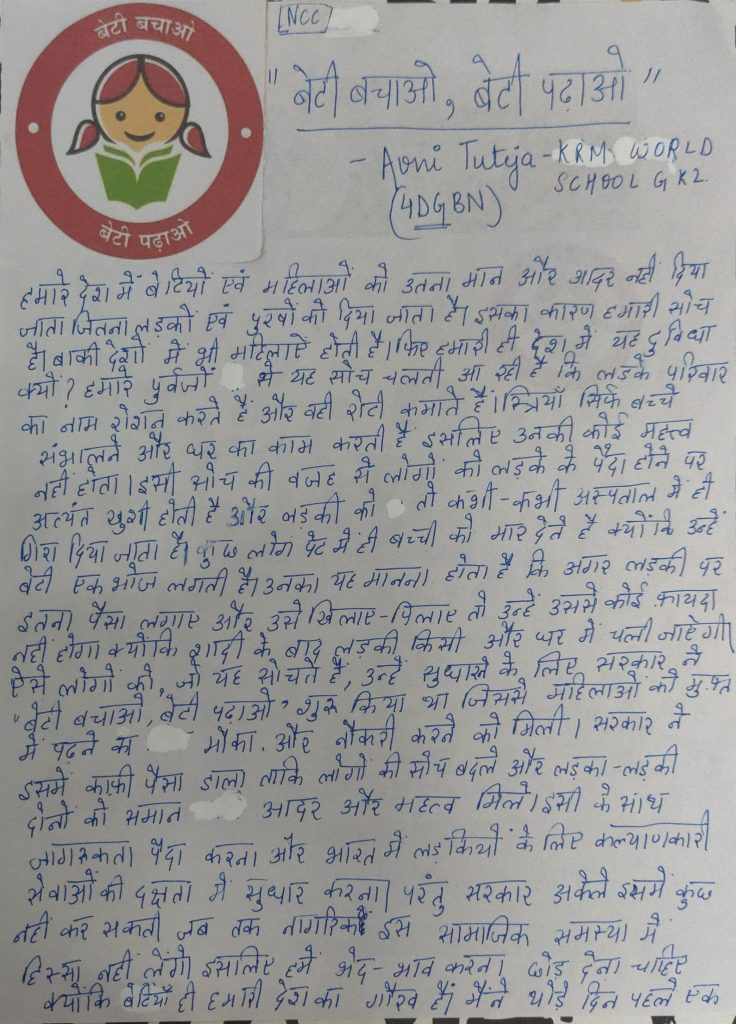 बेटी बचाओ
बेटी पढ़ाओ
[NCC]
"बेटी बचाओ, बेटी पढ़ाओ"
- Avni Tuteja - KRM WORLD
SCHOOL GK2.
(4DGBN)
हमारे देश में बेटियों एवं महिलाओं को उतना मान और आदर नहीं दिया
जाता जितना लड़कों एवं पुरषों को दिया जाता है। इसका कारण हमारी सोच
है। बाकी देशों में भी महिलाऐं होती है। फिर हमारी ही देश में यह दुविधा
क्यों? हमारे पुर्वजों से यह सोच चलती आ रही है कि लड़के परिवार
का नाम रोशन करते हैं और वही रोटी कमाते हैं। स्त्रियाँ सिर्फ बच्चे
संभालने और घर का काम करती हैं इसलिए उनकी कोई महत्व
नहीं होता। इसी सोच की वजह से लोगों को लड़के के पैदा होने पर
अत्यंत खुशी होती है और लड़की को तो कभी-कभी अस्पताल में ही
गिरा दिया जाता है। कुछ लोग पेट में ही बच्ची को मार देते है क्योंकि उन्हें
बेटी एक भोज लगती है। उनका यह मानना होता है कि अगर लड़की पर
इतना पैसा लगाए और उसे खिलाए-पिलाए तो उन्हें उससे कोई फ़ायदा
नहीं होगा क्योंकि शादी के बाद लड़की किसी और घर में चली जाऐगी।
ऐसे लोगों को, जो यह सोचते हैं, उन्हें सुधारने के लिए सरकार ने
"बेटी बचाओ, बेटी पढ़ाओ" शुरू किया था जिससे महिलाओं को मुफ्त
में पढ़ने का मौका. और नौकरी करने को मिली। सरकार ने
इसमें काफ़ी पैसा डाला ताकि लोगों की सोच बदले और लड़का-लड़की
दोनों को समान आदर और महत्व मिले। इसी के साथ
जागरूकता पैदा करना और भारत में लड़कियों के लिए कल्याणकारी
सेवाओं की दक्षता में सुधार करना। परंतु सरकार अकेले इसमें कुछ
नहीं कर सकती जब तक नागरिक इस सामाजिक समस्या में
हिस्सा नहीं लेंगे। इसलिए हमें भेद-भाव करना छोड़ देना चाहिए
क्योंकि बेटियाँ ही हमारी देश का गौरव हैं। मैंने थोड़े दिन पहले एक